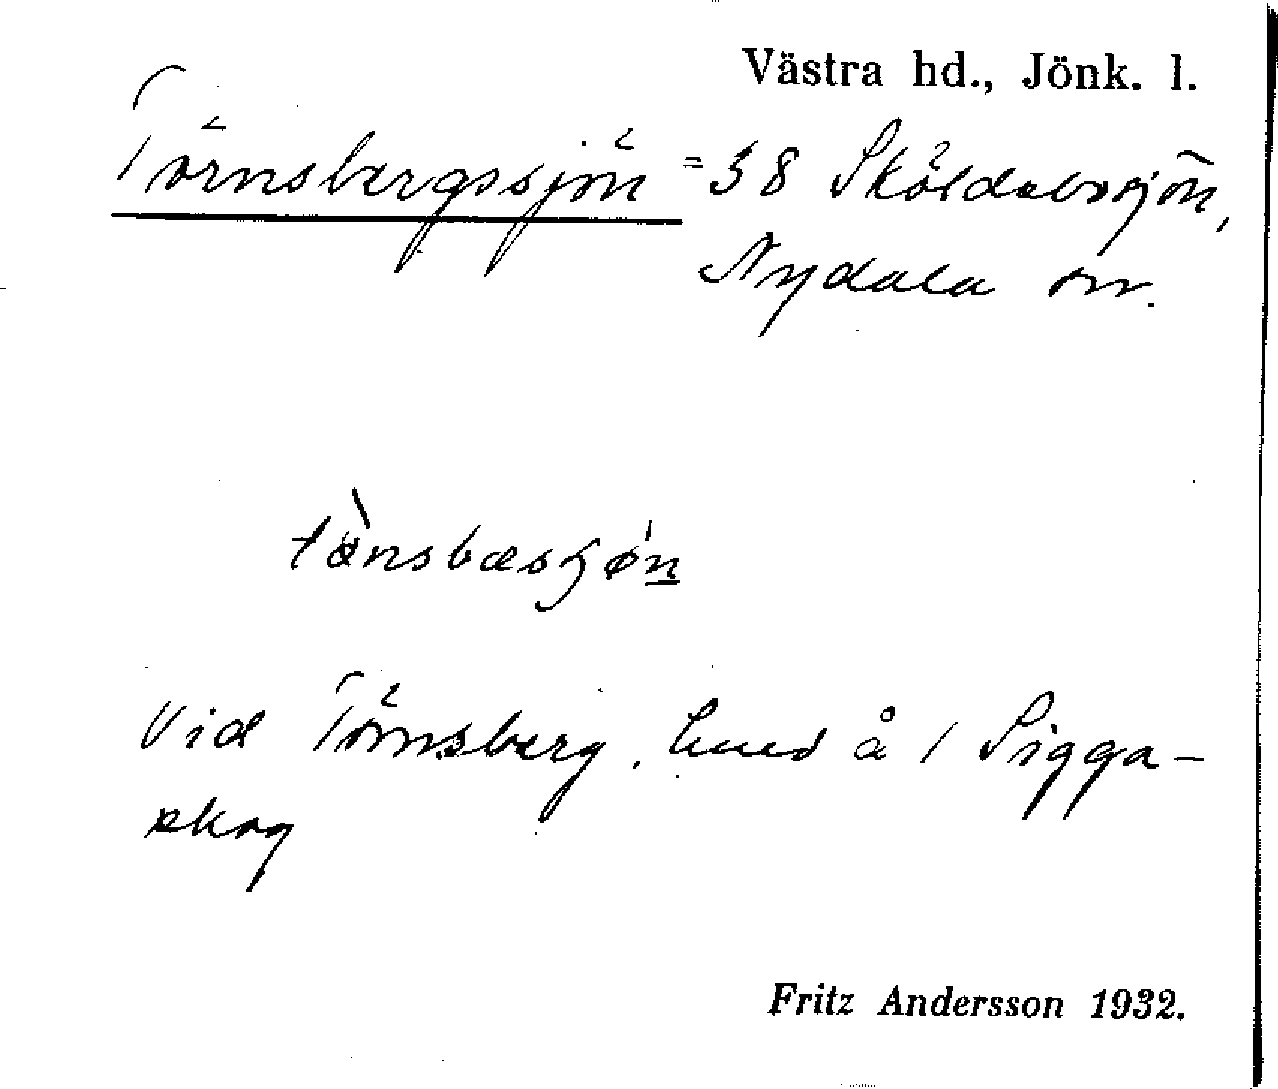 Västra hd., Jönk. l.
Törnsbergssjön = 38 Sköldabosjön,
Nydala sn.
tö̀nsbæsjøn
Vid Törnsberg, hmd å 1 Sigga-
skog
Fritz Andersson 1932.